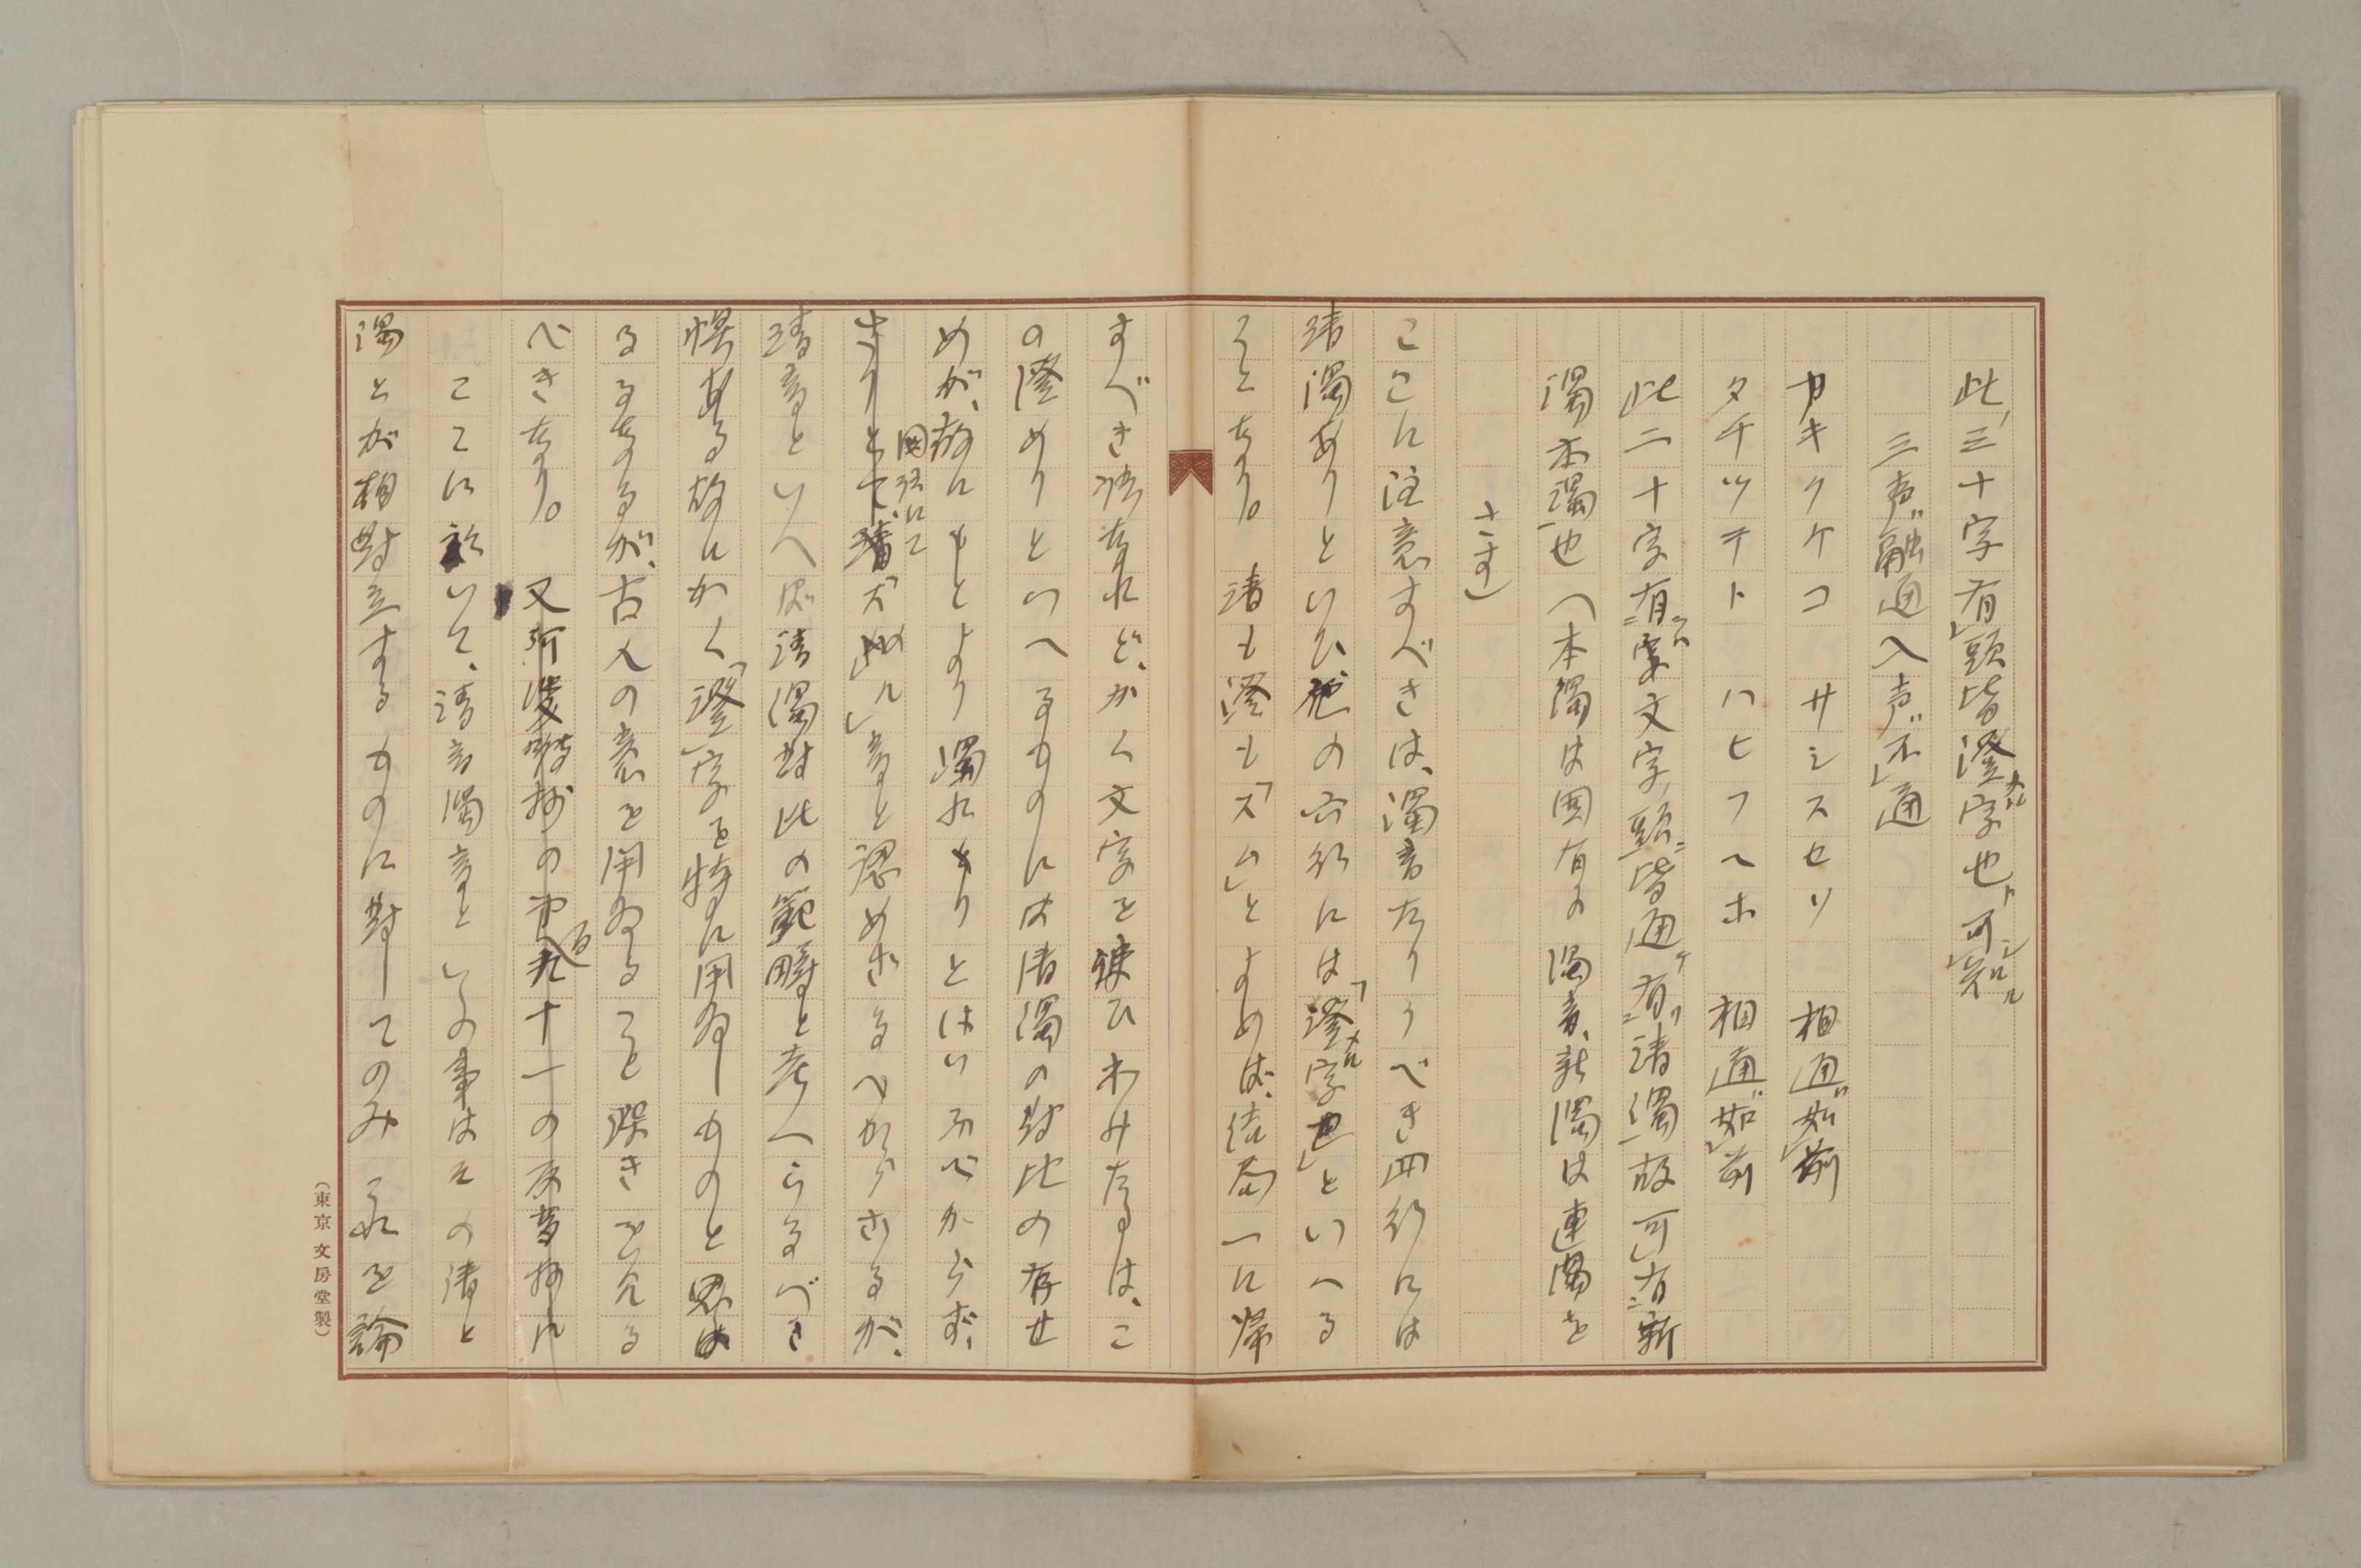 此三十字有頭皆澄字也可知
三声融通入声不通
カキクケコ　サシスセソ　相通如前
タチツテト　ハヒフヘホ　相通如前
此二十字有字文字頭皆通有清濁故可有新
濁本濁也（本濁は固有の濁音、新濁は連濁を
さす）
ここに注意すべきは、濁音たりうべき四行には
清濁ありといひ、他の六行には「澄字也」といへる
こと なり。清も澄も「スム」とよめば、結局一に帰
すべき語なれど、かく文字を使ひわけたるは、こ
の澄めりといへるものには清濁の対比の存せ
めが、故にもとより濁れりとはいふべからず、
さりとて国語にて清音と認めさるべからざるが、
清音といへば清濁対比の範疇と考へらるべき
惧ある故にかく「澄」字を特に用ゐしものと思は
るるなるが、古人の意を用ゐること深きを見る
べきなり。
ここに於いて、清音濁音といふの事はその清と
濁とが相対立するものに対してのみ これを論
（東京文房堂製）